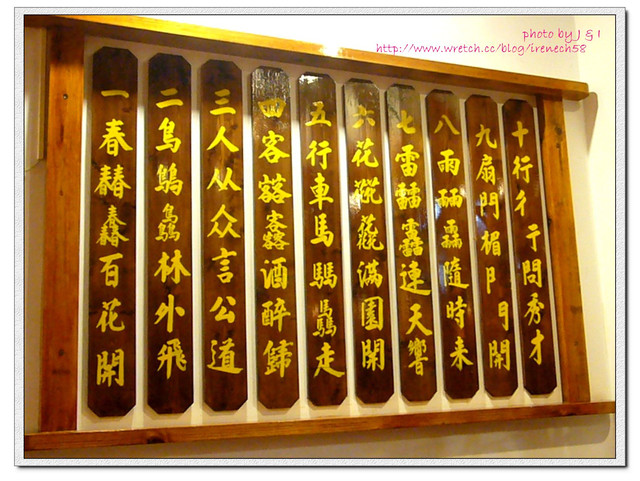 photo by J & I
http://www.wretch.cc/blog/irenech58
一春百花開
二鳥林外飛
三人从众言公道
四客酒醉歸
五行車馬驫走
六花滿園開
七雷靐連天響
八雨隨時来
九扇門楣開
十行彳亍問秀才